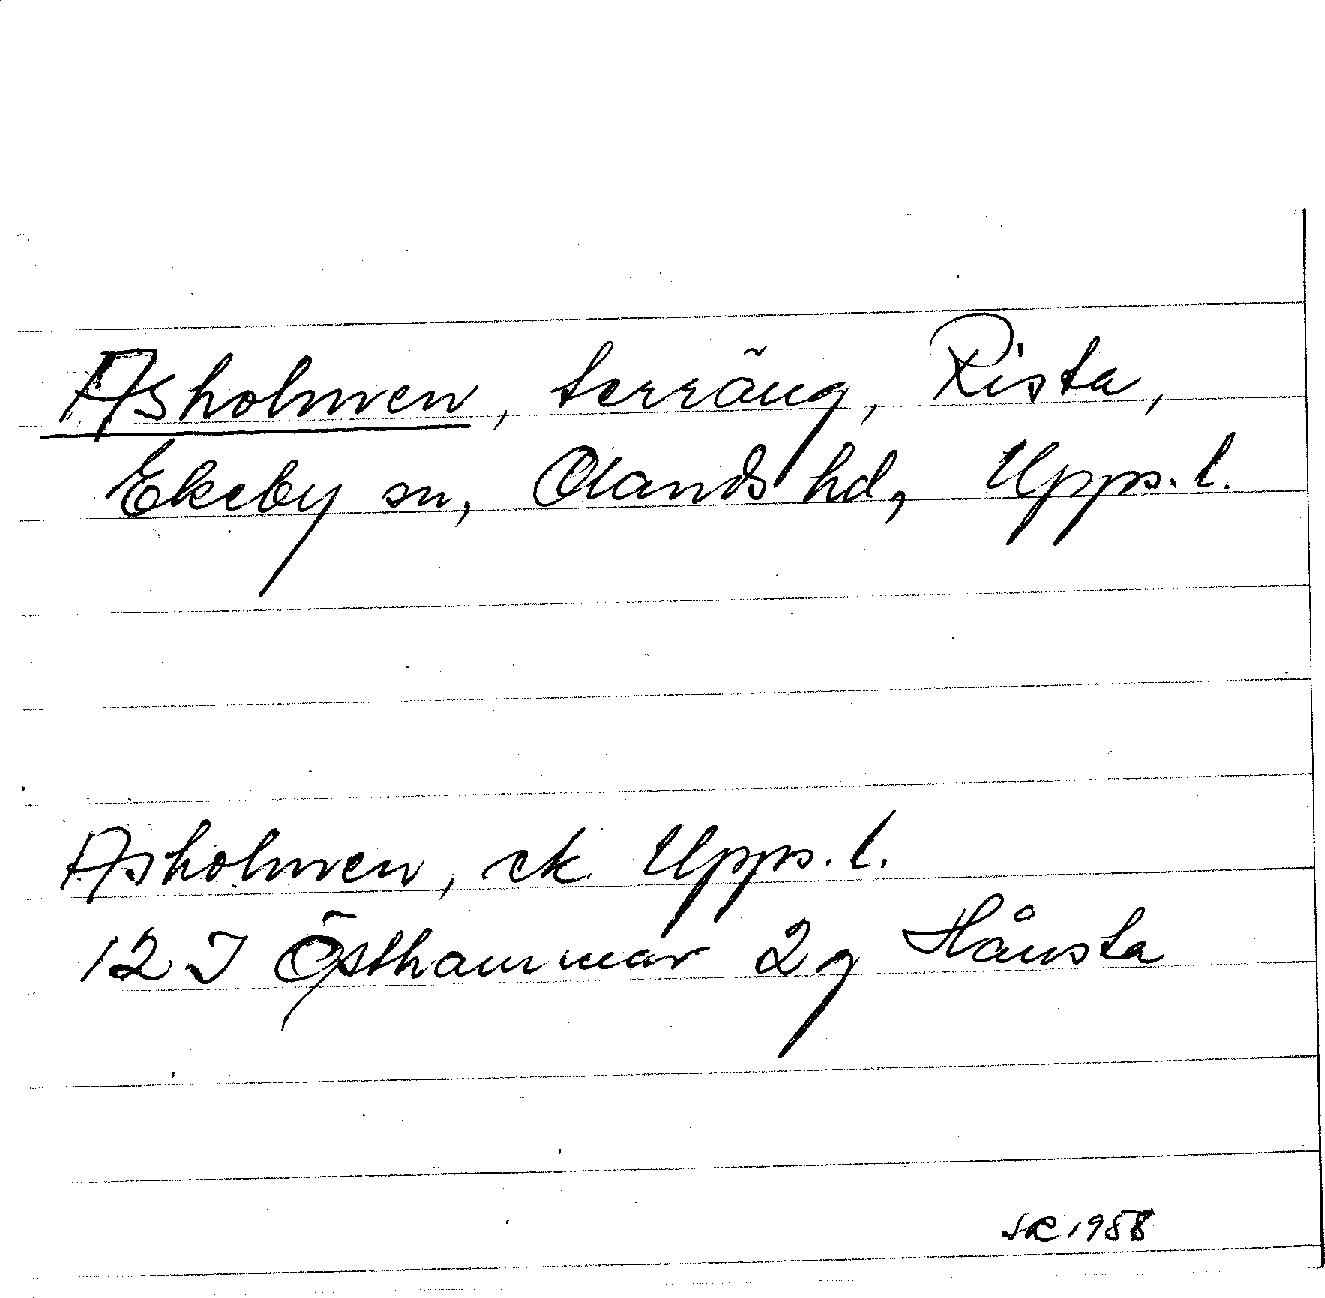 Asholmen, terräng, Rista,
Ekeby sn, Olands hd, Upps. l.
Asholmen, ek. Upps. l.
12 I Östhammar 2g Hånsta
1988